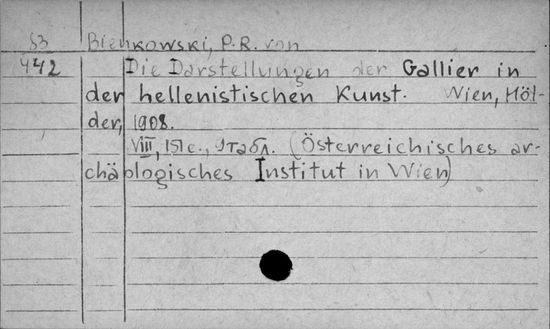 83 Bieńkowski, P. R. von
442 Die Darstellungen der Gallier in
der hellenistischen Kunst. Wien, Höl-
der, 1908.
VIII, 151 c., 9 табл. (Österreichisches ar-
chäologisches Institut in Wien)